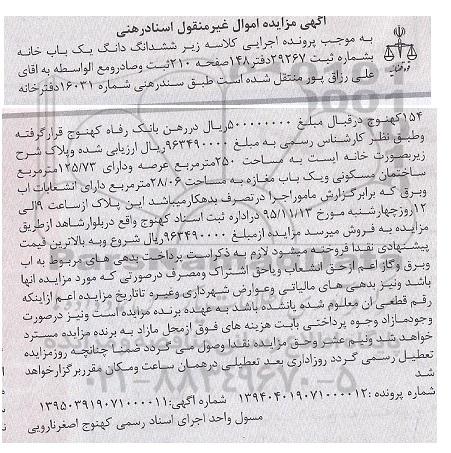 آگهی مزایده اموال غیرمنقول اسنادرهنی
به موجب پرونده اجرایی کلاسه زیر ششدانگ دانگ یک باب خانه
بشماره ثبت ۲۹۲۶۷دفتر۱۴۸صفحه ۲۱۰ثبت وصادرومع الواسطه به اقای
علی رزاق پور منتقل شده است طبق سندرهنی شماره ۱۶۰۳۱دفترخانه
۱۵۴کهنوج درقبال مبلغ ۵۰۰۰۰۰۰۰۰ریال دررهن بانک رفاه کهنوج قرارگرفته
وطبق نظر کارشناس رسمی به مبلغ ۹۶۳۴۹۰۰۰۰ریال ارزیابی شده وپلاک شرح
زیربصورت خانه ایست به مساحت ۲۵۰مترمربع عرصه ودارای ۱۲۵/۷۳مترمربع
ساختمان مسکونی ویک باب مغازه به مساحت ۲۸/۰۶مترمربع دارای انشعابات اب
وبرق که برابرگزارش ماموراجرا درتصرف بدهکارمیباشد این پلاک ازساعت ۹الی
۱۲روزچهارشنبه مورخ ۹۵/۱۱/۱۳ دراداره ثبت اسناد کهنوج واقع دربلوارشاهد ازطریق
مزایده به فروش میرسد مزایده ازمبلغ ۹۶۳۴۹۰۰۰۰ریال شروع وبه بالاترین قیمت
پیشنهادی نقدا فروخته میشود لازم به ذکراست پرداخت بدهی های مربوط به اب
وبرق وگاز اعم ازحق انشعاب ویاحق اشتراک ومصرف درصورتی که مورد مزایده انها
باشد ونیز بدهی های مالیاتی وعوارض شهرداری وغیره تاتاریخ مزایده اعم ازاینکه
رقم قطعی ان معلوم شده یانشده باشد به عهده برنده مزایده است ونیز درصورت
وجودمازاد وجوه پرداختی بابت هزینه های فوق ازمحل مازاد به برنده مزایده مسترد
خواهد شد ونیم عشر وحق مزایده نقدا وصول می گردد ضمنا چنانچه روزمزایده
تعطیل رسمی گردد روزاداری بعد تعطیلی درهمان ساعت ومکان مقرربرگزارخواهد
شد
شماره پرونده :۱۳۹۴۰۴۰۱۹۰۷۱۰۰۰۰۱۲ شماره آگهی:۱۳۹۵۰۳۹۱۹۰۷۱۰۰۰۰۱۱
مسول واحد اجرای اسناد رسمی کهنوج اصغرنارویی
۰۲۱-۸۸۳۴۹۶۷۰-۵